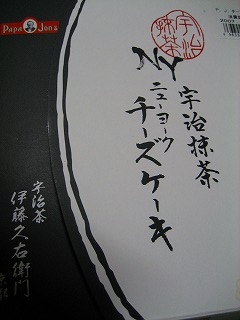 PAPA Jon's
宇治
抹茶
宇治抹茶
NY
ニューヨーク
チーズケーキ
宇治茶
伊藤久右衛門
京都